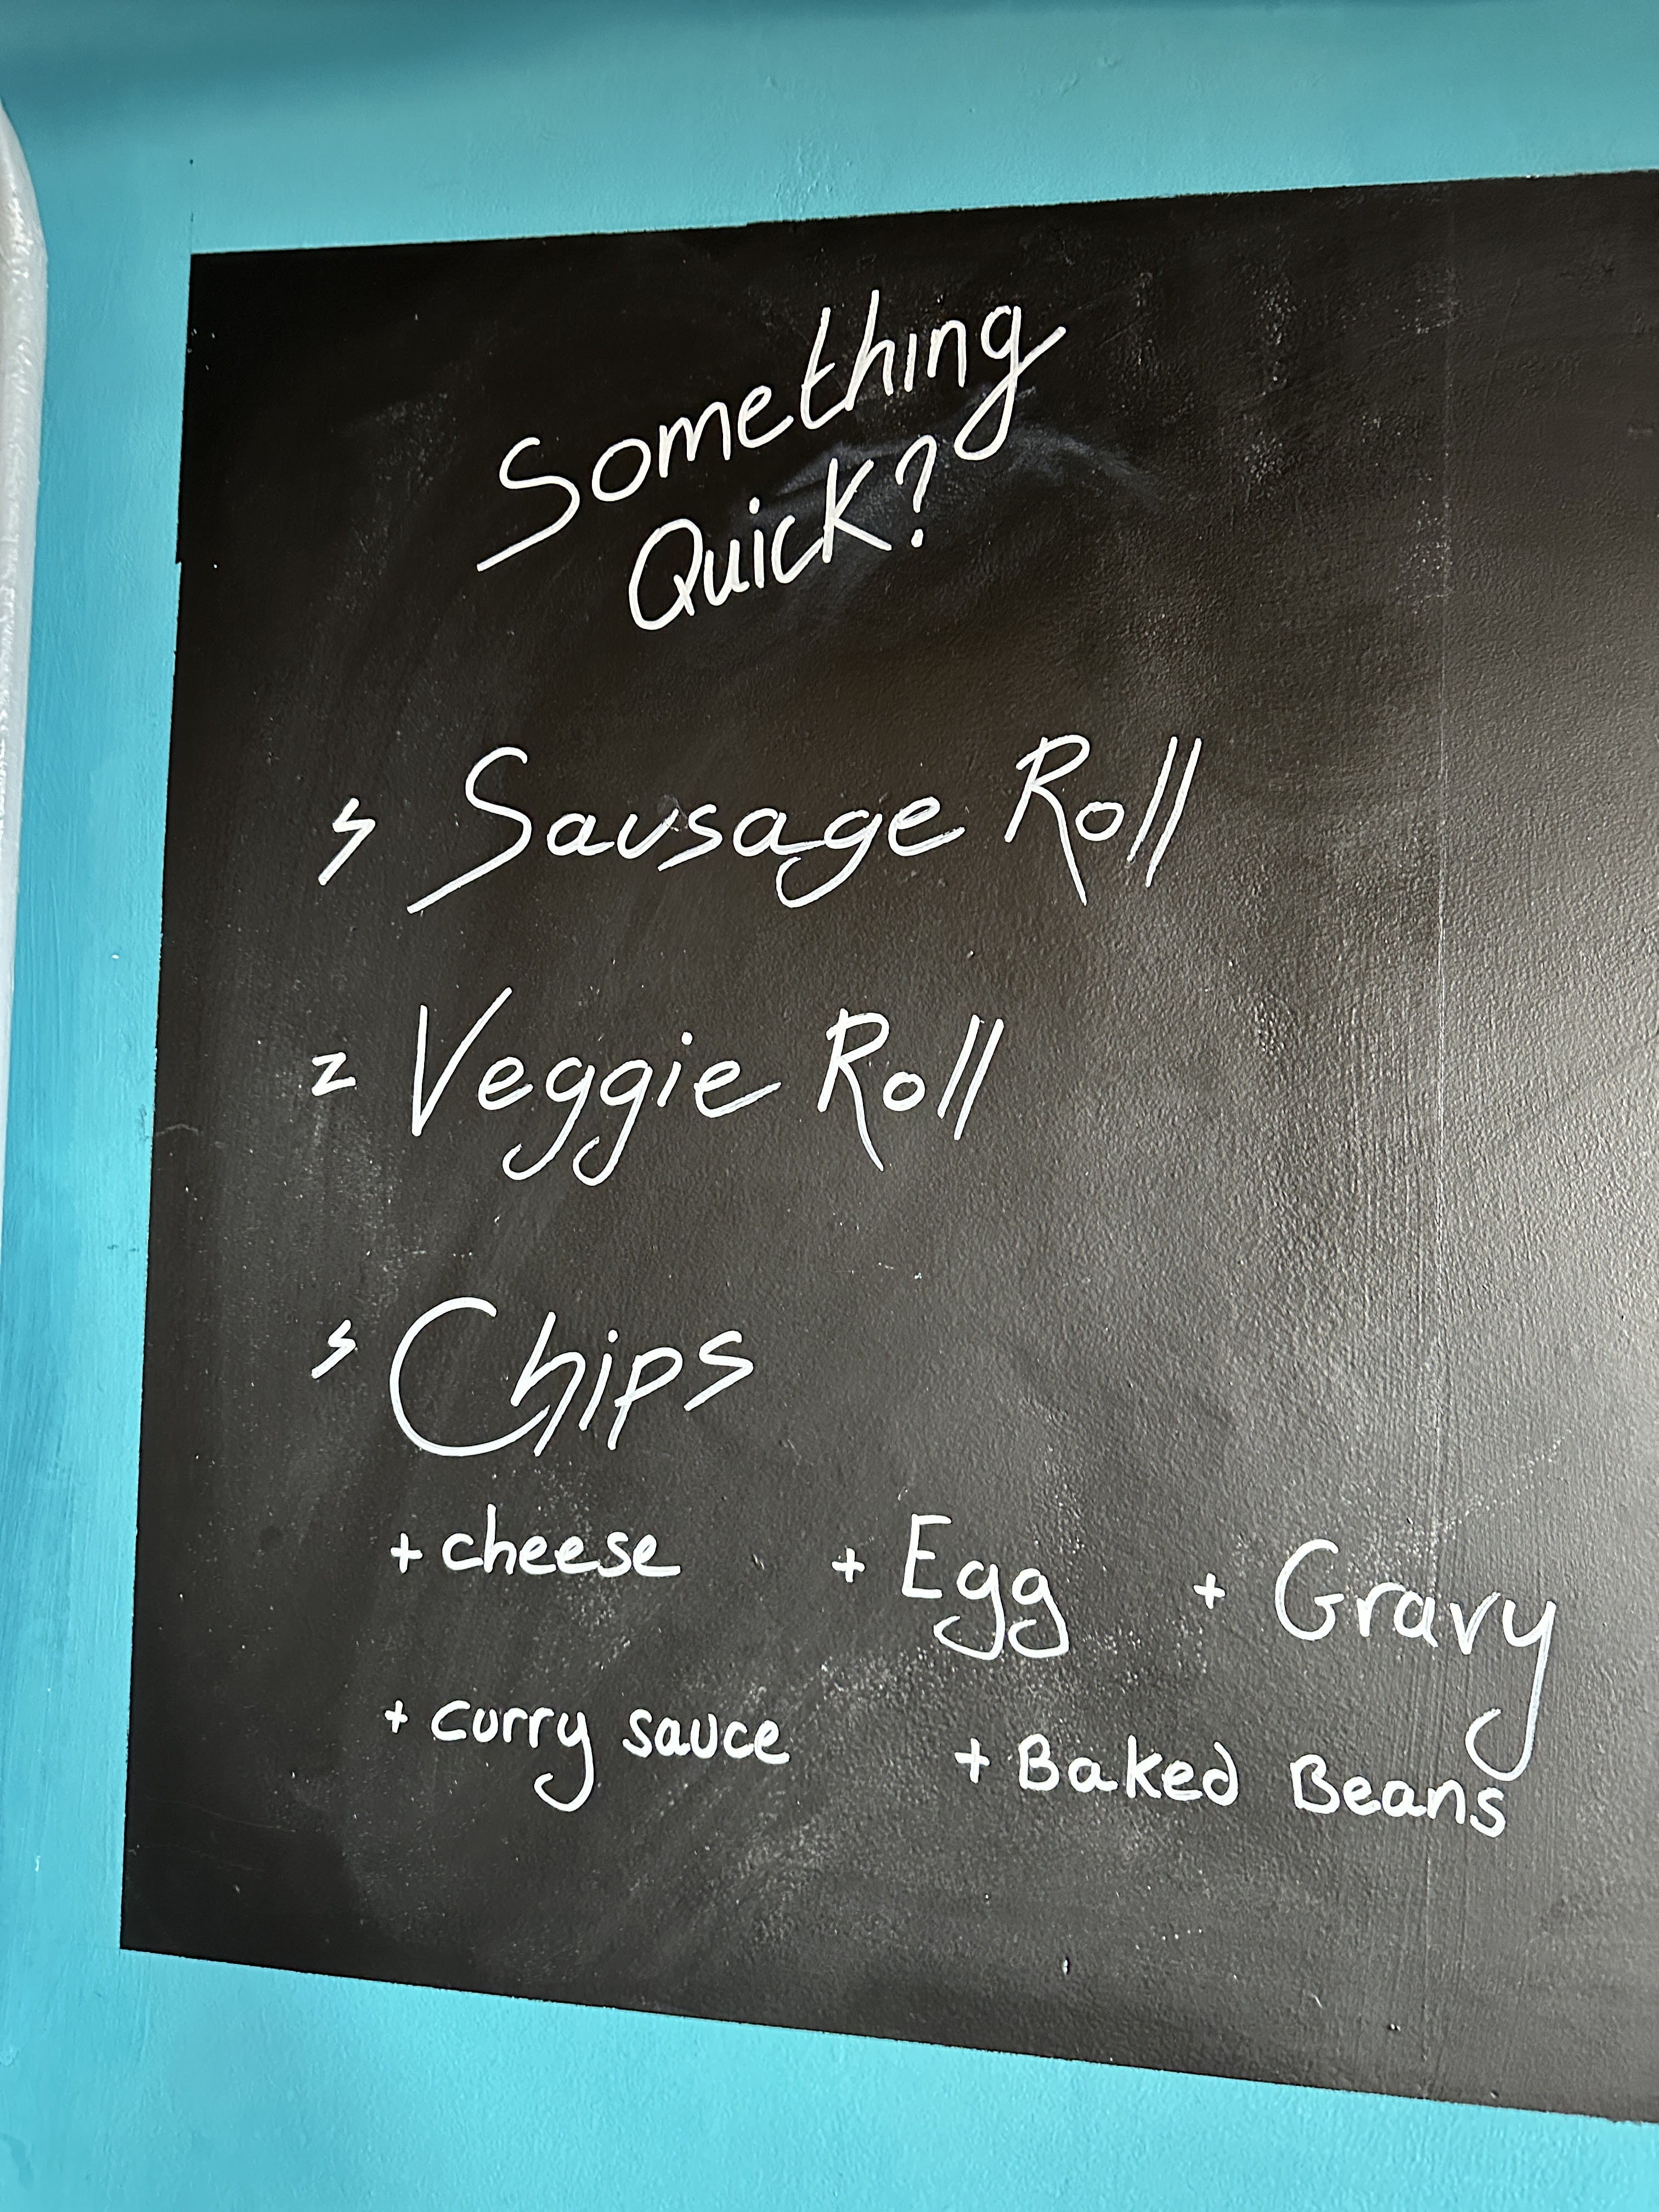 Something
Quick?
Sausage Roll
Veggie Roll
Chips
+ cheese + Egg + Gravy
+ curry sauce + Baked Beans